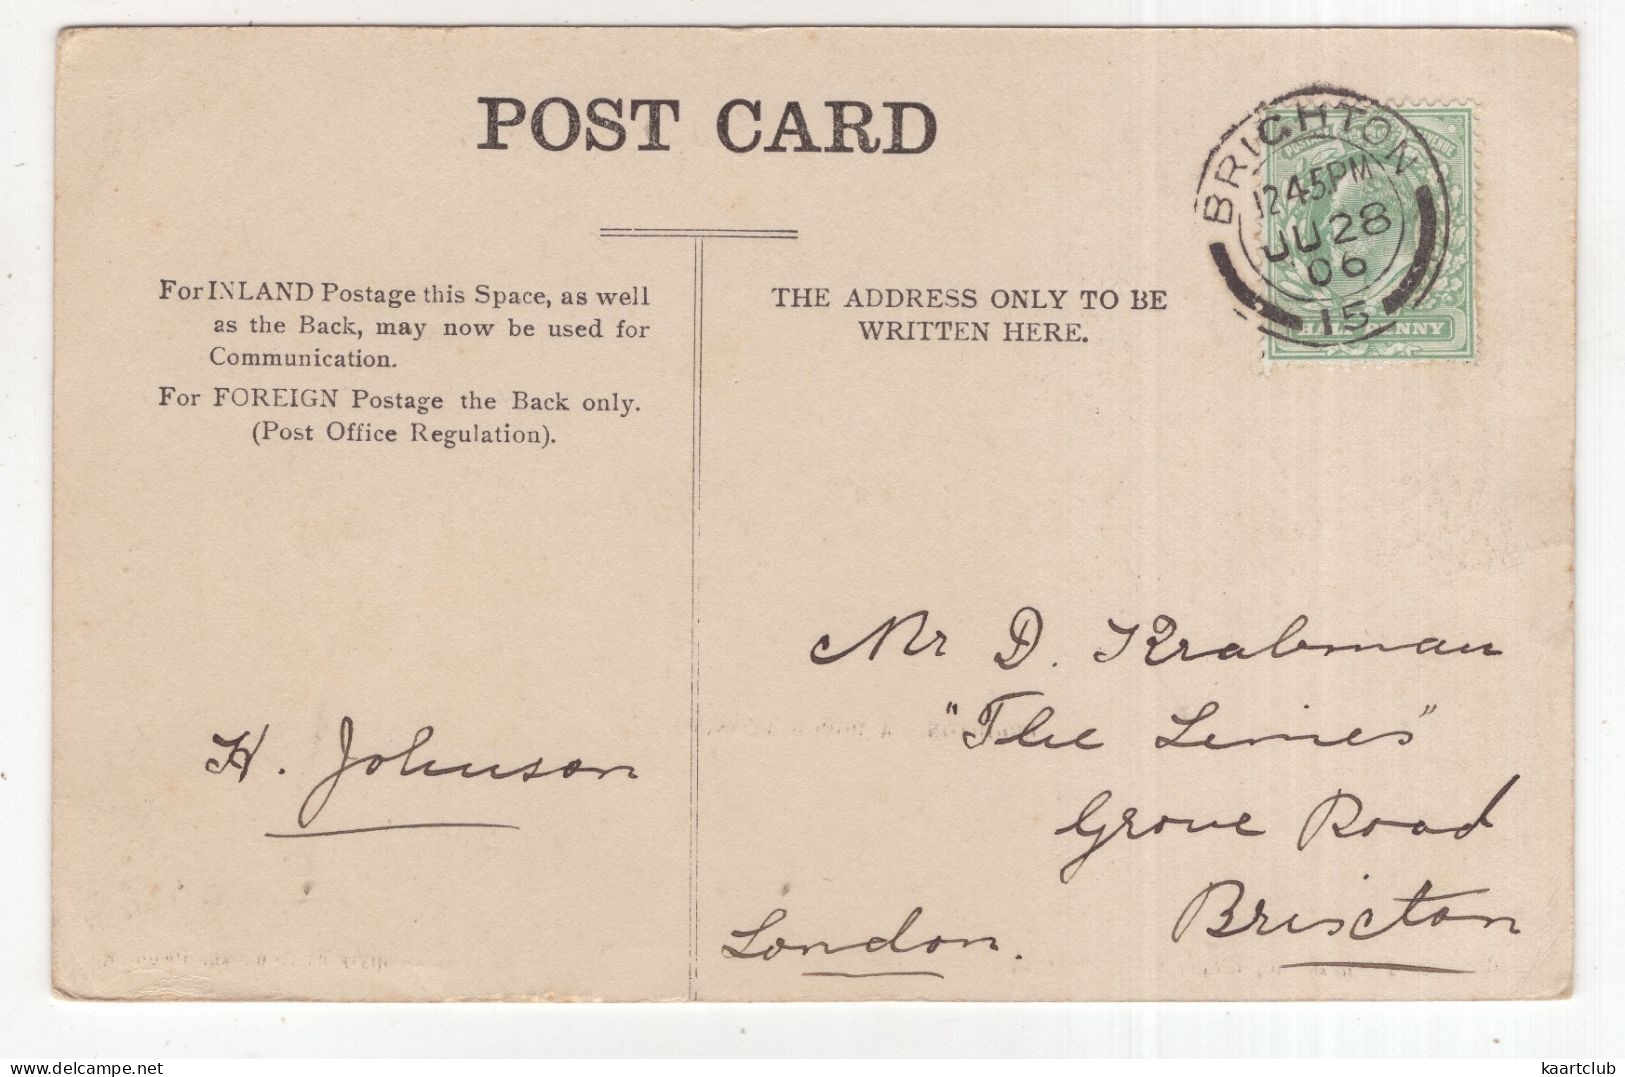 POST CARD
BRIGHTON
12 45 PM
JU 28
06
15
POSTAGE REVENUE
HALFPENNY
For INLAND Postage this Space, as well
as the Back, may now be used for
Communication.
For FOREIGN Postage the Back only.
(Post Office Regulation).
THE ADDRESS ONLY TO BE
WRITTEN HERE.
H. Johnson
Mr D. Krabman
"The Limes"
Grove Road
Brixton
London.
delcampe.net
kaartclub